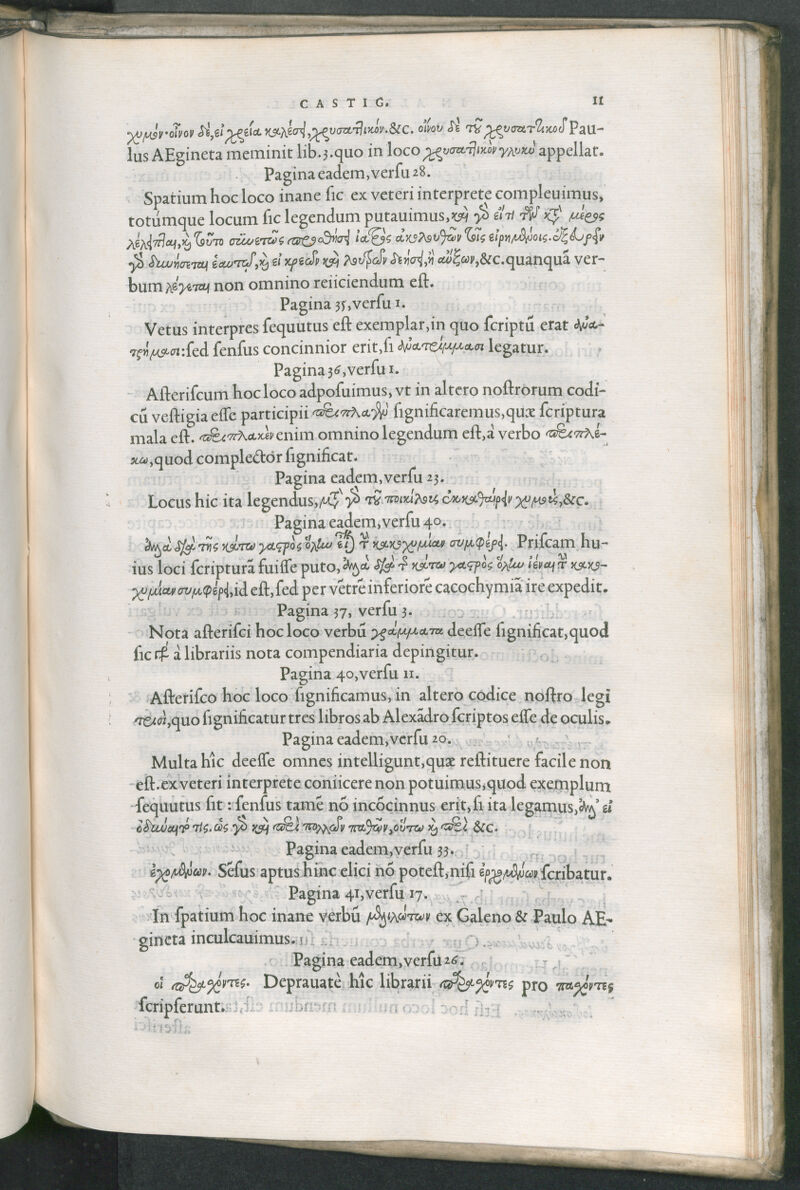 CASTIG. 11
χυμόν· οἶνον δὲ, εἰ χρεία καλέσῃ, χρυσαττικόν. &c. οἴνου δὲ τοῦ χρυσαττικοῦ Pau-
lus AEgineta meminit lib.3.quo in loco χρυσαττικὸν γλυκὺ appellat.
Pagina eadem, versu 28.
Spatium hoc loco inane sic ex veteri interprete compleuimus,
totúmque locum sic legendum putauimus, καὶ γὰρ εἴ τι τῶν κατὰ μέρος
λέλειπται, καὶ τοῦτο συνετῶς προσθήσει ἰατρὸς ἀκολουθῶν τοῖς εἰρημένοις. ἐξευρεῖν
γὰρ δυνήσεται ἑαυτῷ, καὶ εἰ κρεῶν καὶ λουτρῶν δεήσει, ἢ αὔξων, &c. quanquã ver-
bum λέγεται non omnino reiiciendum est.
Pagina 35, versu 1.
Vetus interpres sequutus est exemplar, in quo scriptũ erat ἀνα-
τρήμασι: sed sensus concinnior erit, si ἀνατρίμμασι legatur.
Pagina 36, versu 1.
Asteriscum hoc loco adposuimus, vt in altero nostrorum codi-
cũ vestigia esse participii περιπλαγὲν significaremus, quæ scriptura
mala est. περιπλακὲν enim omnino legendum est, à verbo περιπλέ-
κω, quod complector significat.
Pagina eadem, versu 23.
Locus hic ita legendus, μετὰ γὰρ τοῦ ποικίλους ἐκκαθαίρειν χυμοὺς, &c.
Pagina eadem, versu 40.
ἀλλὰ διὰ τῆς κάτω γαστρὸς ὅλην εἶναι τὴν κακοχυμίαν συμφέρει. Priscam hu-
ius loci scripturã fuisse puto, ἀλλὰ διὰ τῆς κάτω γαστρὸς ὅλην ἰέναι τὴν κακο-
χυμίαν συμφέρει, id est, sed per vẽtrẽ inferiorẽ cacochymiã ire expedit.
Pagina 37, versu 3.
Nota asterisci hoc loco verbũ γράμματα deesse significat, quod
sic à librariis nota compendiaria depingitur.
Pagina 40, versu 11.
Asterisco hoc loco significamus, in altero codice nostro legi
τρισὶ, quo significatur tres libros ab Alexãdro scriptos esse de oculis.
Pagina eadem, versu 20.
Multa hîc deesse omnes intelligunt, quæ restituere facile non
est. ex veteri interprete coniicere non potuimus, quod exemplum
sequutus sit: sensus tamẽ nõ incõcinnus erit, si ita legamus, ἀλλ' εἰ
ὀδυνῷτό τις. ὡς γὰρ καὶ περὶ πολλῶν παθῶν, οὕτω καὶ περὶ &c.
Pagina eadem, versu 33.
ἐχομένων. Sẽsus aptus hinc elici nõ potest, nisi ἐρχομένων scribatur.
Pagina 41, versu 17.
In spatium hoc inane verbũ μελιλώτων ex Galeno & Paulo AE-
gineta inculcauimus.
Pagina eadem, versu 26.
οἱ παραχόντες. Deprauatè hîc librarii παραχόντες pro παχόντες
scripserunt.